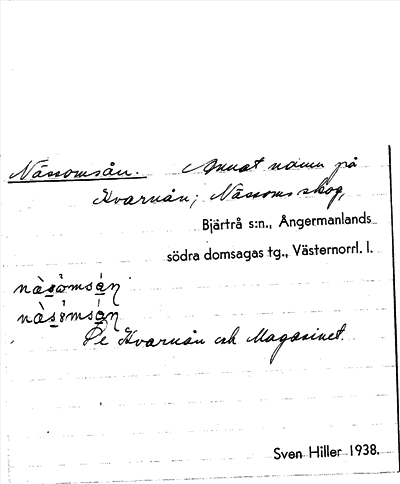 Nässomsån. Annat namn på
Kvarnån; Nässoms skog,
Bjärtrå s:n., Ångermanlands
södra domsagas tg., Västernorrl. l.
nàsɷ̀msáŋ
nàsɷ̀msáŋ
På Kvarnån och Magasinet.
Sven Hiller 1938.